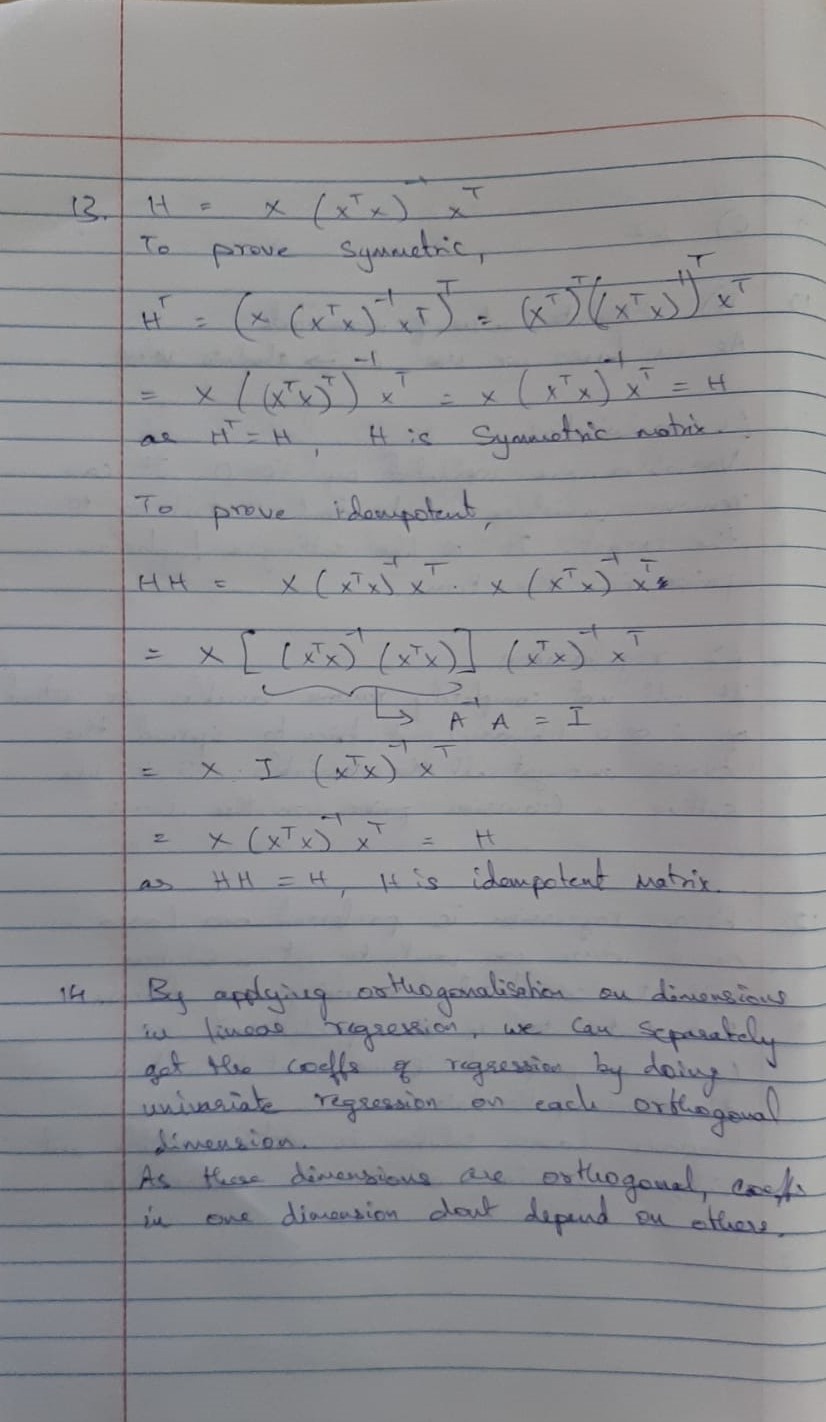 13. H = X (XᵀX)⁻¹ Xᵀ
To prove symmetric,
Hᵀ = (X (XᵀX)⁻¹ Xᵀ)ᵀ = (Xᵀ)ᵀ((XᵀX)⁻¹)ᵀ Xᵀ
= X ((XᵀX)ᵀ)⁻¹ Xᵀ = X (XᵀX)⁻¹ Xᵀ = H
as Hᵀ = H, H is Symmetric matrix.
To prove idempotent,
HH = X (XᵀX)⁻¹ Xᵀ . X (XᵀX)⁻¹ Xᵀ
= X [ (XᵀX)⁻¹ (XᵀX) ] (XᵀX)⁻¹ Xᵀ
↳ A⁻¹ A = I
= X . I (XᵀX)⁻¹ Xᵀ
= X (XᵀX)⁻¹ Xᵀ = H
as HH = H, H is idempotent Matrix.
14. By applying orthogonalisation on dimensions
in linear regression, we can separately
get the coeffs of regression by doing
univariate regression on each orthogonal
dimension.
As these dimensions are orthogonal, coeffs
in one dimension dont depend on others.